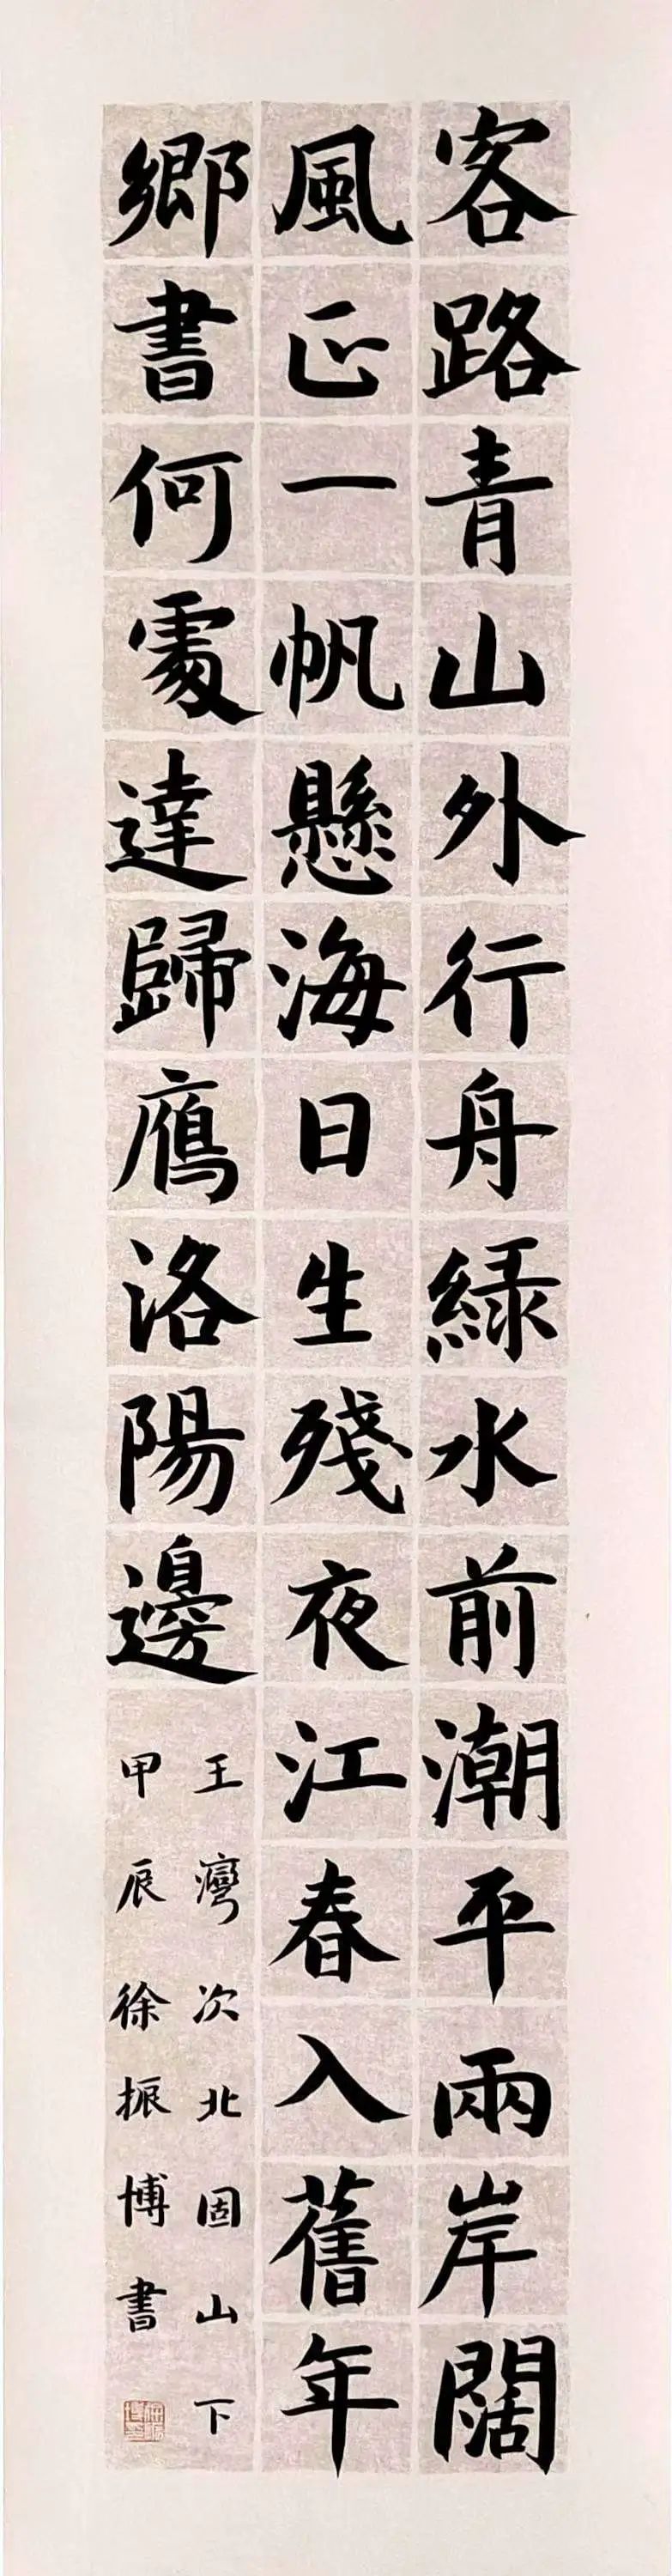 客路青山外行舟緑水前潮平兩岸闊
風正一帆懸海日生殘夜江春入舊年
鄉書何處達歸鴈洛陽邊
王灣次北固山下
甲辰徐振博書